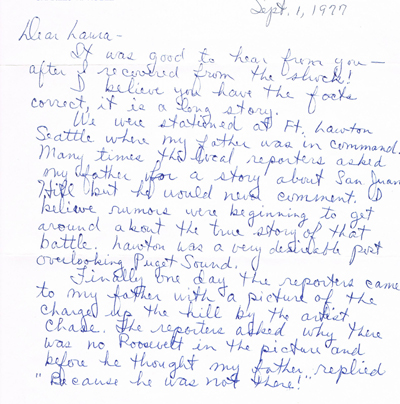 Sept. 1, 1977
Dear Laura-
It was good to hear from you —
after I recovered from the shock!
I believe you have the facts
correct, it is a long story.
We were stationed at Ft. Lawton
Seattle where my father was in command.
Many times the local reporters asked
my father for a story about San Juan
Hill but he would never comment. I
believe rumors were beginning to get
around about the true story of that
battle. Lawton was a very desirable post
overlooking Puget Sound.
Finally one day the reporters came
to my father with a picture of the
charge up the hill by the artist
Chase. The reporters asked why there
was no Roosevelt in the picture and
before he thought my father replied
"Because he was not there!"